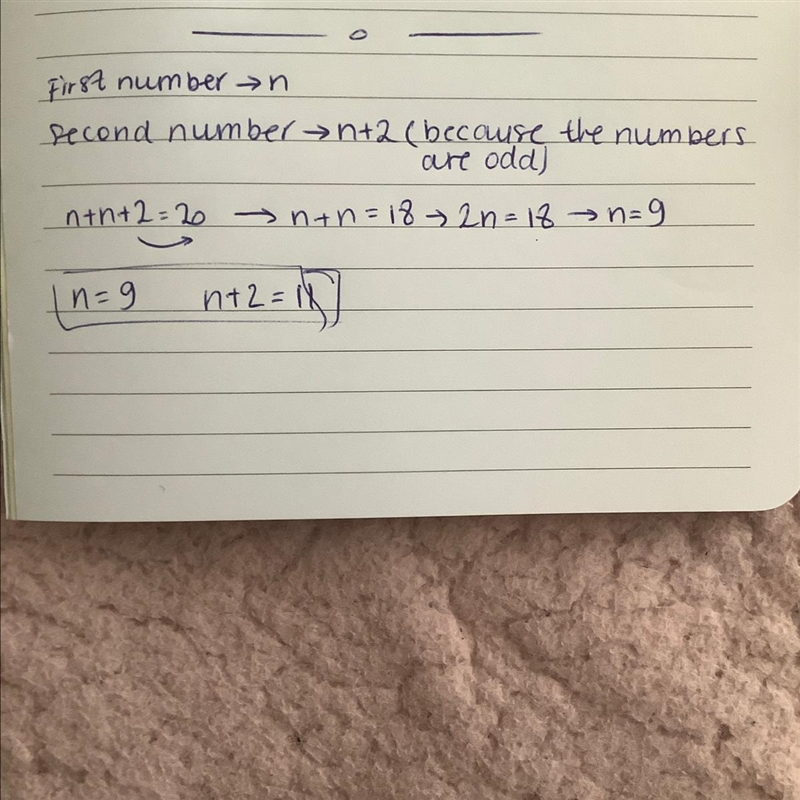 First number → n
second number → n+2 (because the numbers
are odd)
n+n+2=20 → n+n=18 → 2n=18 → n=9
n=9 n+2=11